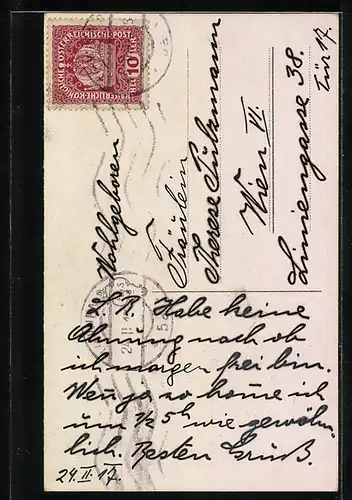 KAISERLICHE KÖNIGLICHE ÖSTERREICHISCHE POST
10 HELLER 10
Wohlgeboren
Fräulein
Therese Fuhrmann
Wien VI.
Liniengasse 38.
Tür 17.
L. R. Habe keine
Ahnung noch ob
ich morgen frei bin.
Wenn ja so kome ich
um ½ 5h wie gewöhn
lich. Besten Gruß.
24. II. 17.